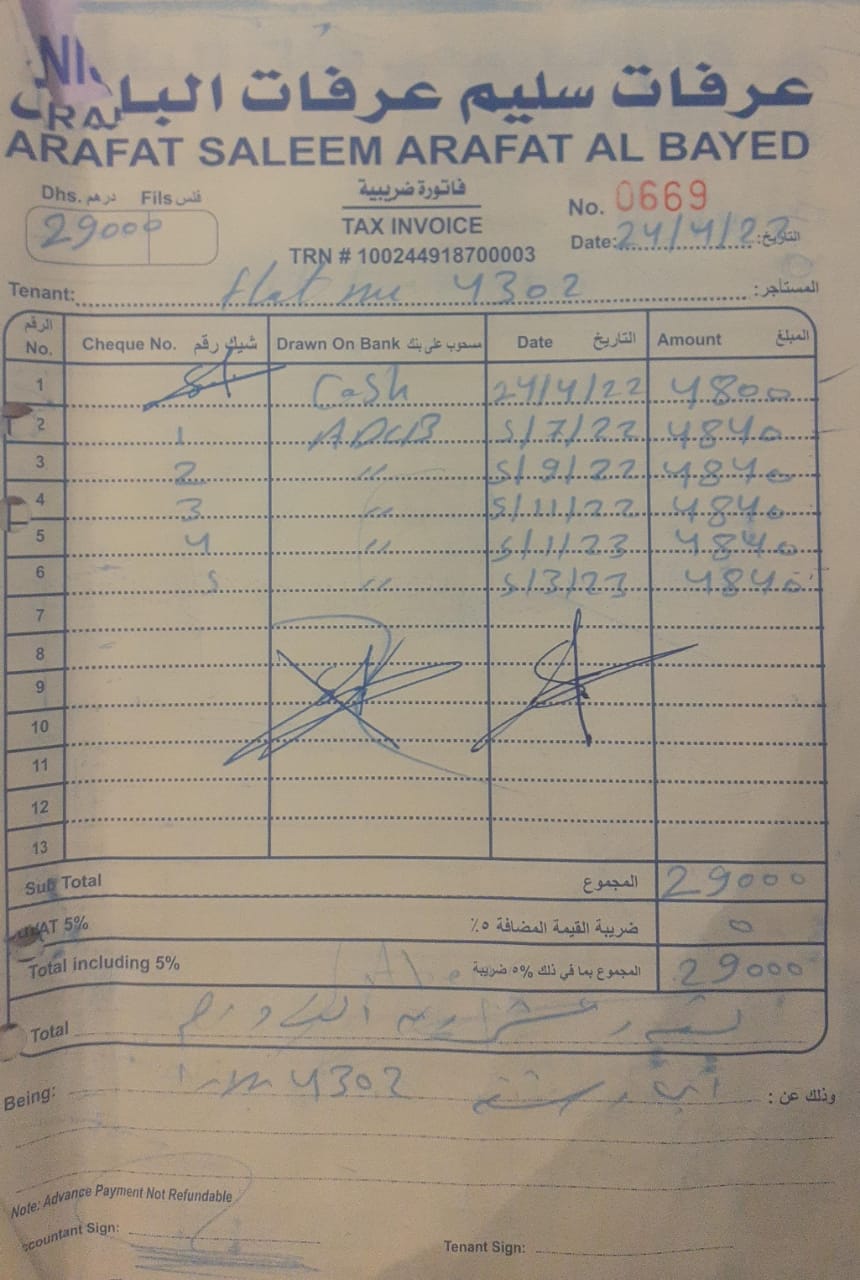 عرفات سليم عرفات البا
ARAFAT SALEEM ARAFAT AL BAYED
Dhs. درهم Fils فلس
29000
فاتورة ضريبية
TAX INVOICE
TRN # 100244918700003
No. 0669
Date: 24/4/22 التاريخ:
Tenant: flat no 4302 المستأجر:
الرقم No. Cheque No. شيك رقم Drawn On Bank مسحوب على بنك Date التاريخ Amount المبلغ
1 Cash 24/4/22 4800
2 1 ADCB 5/7/22 4840
3 2 " 5/9/22 4840
4 3 " 5/11/22 4840
5 4 " 5/1/23 4840
6 5 " 5/3/23 4840
7
8
9
10
11
12
13
Sub Total المجموع 29000
VAT 5% ضريبة القيمة المضافة ٥٪ 0
Total including 5% المجموع بما في ذلك ٥% ضريبة 29000
Total
Being: 4302 وذلك عن :
Note: Advance Payment Not Refundable
ccountant Sign:
Tenant Sign: